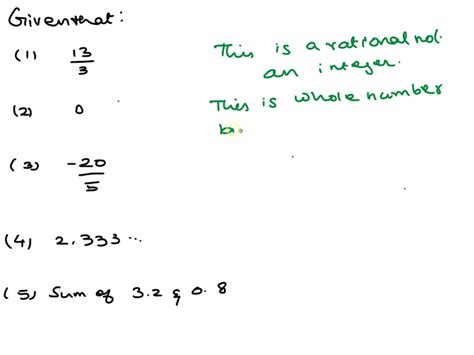 Giventhat:
(1) 13/3
This is a rational not
an integer.
(2) 0
This is whole number
(3) -20/5
(4) 2.333...
(5) Sum of 3.2 & 0.8